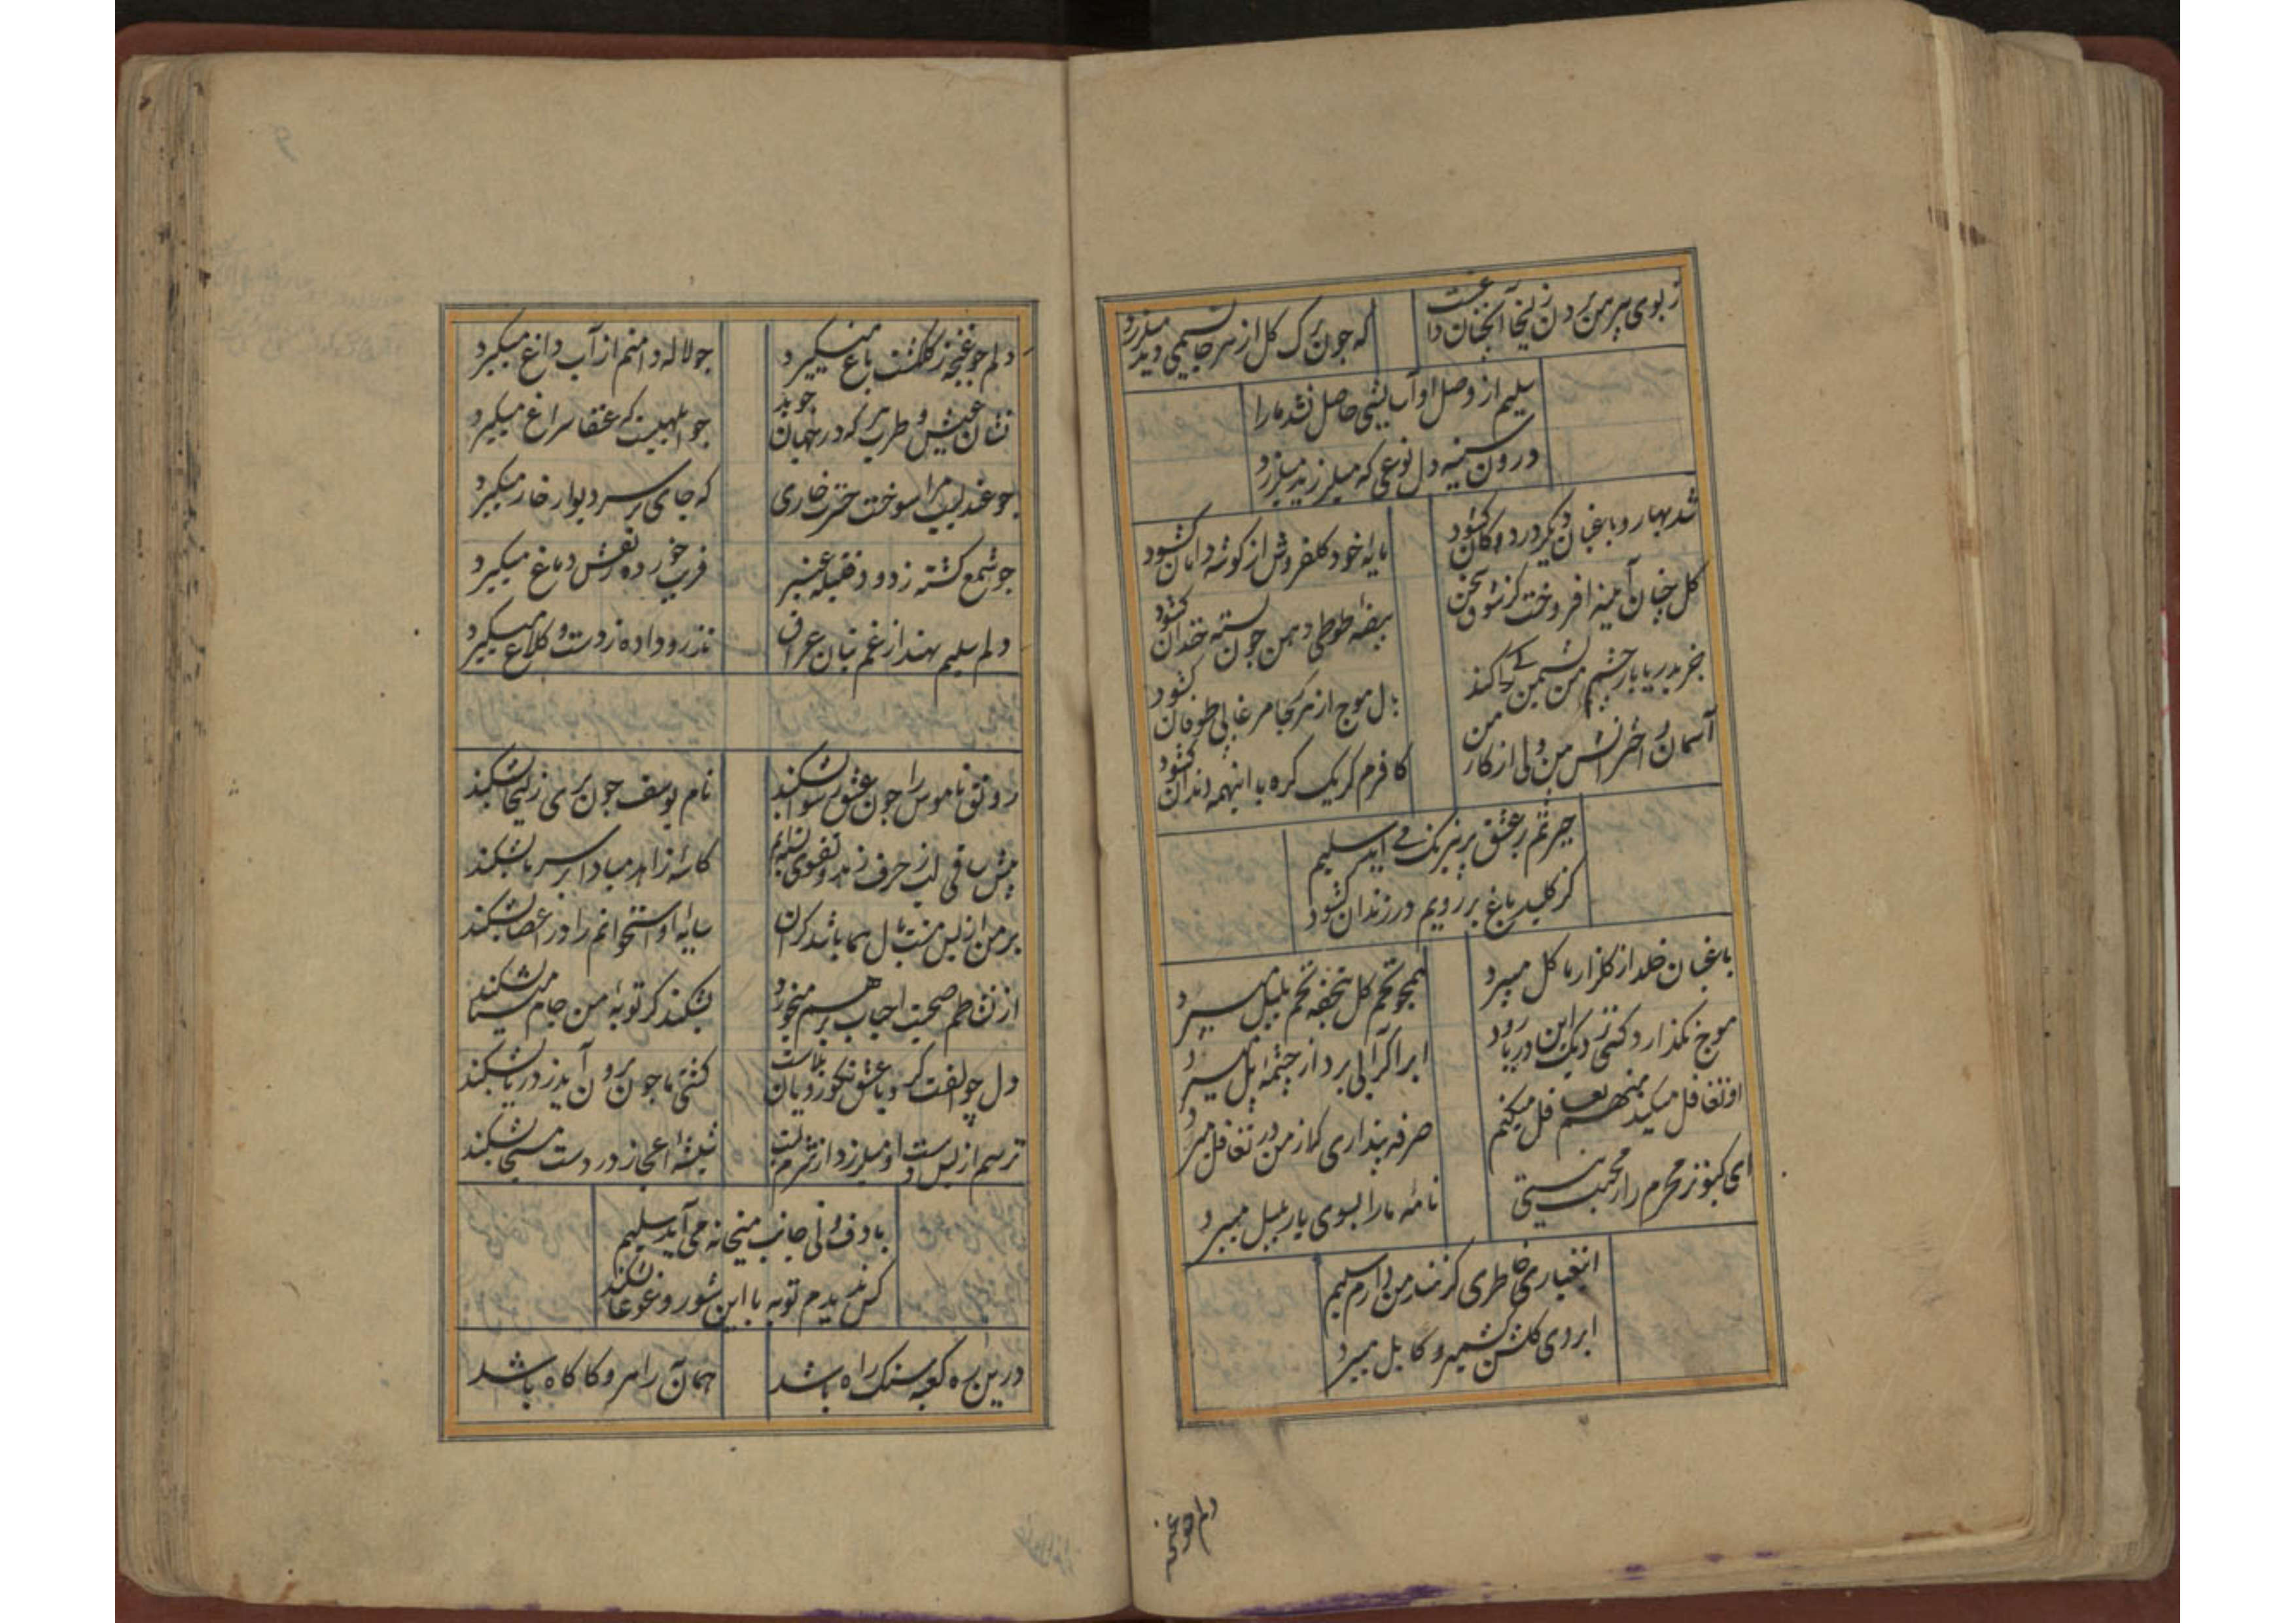 ز بوی پیرهن بردن زلیخا آنچنان داغست
که چون برک کل از هر جا نسیمی دید میلرزد
سلیم از وصل او آسایشی حاصل نشد ما را
درون سینه دل نوعی که میلرزید میلرزد
شد بهار و باغبان دیکر در دوکان کشود
مایه خود کلفروش از کوشه دامان کشود
کل چنان آیینه افروخت کز شوق سخن
بیضه طوطی دهن چون پسته خندان کشود
بال موج از هر کجا مرغابی طوفان کشود
آسمان و اخترانش دشمن من ولی از کار من
کافرم کر یک کره با اینهمه دندان کشود
حیرتم بر عشق پر نیرنک می آید سلیم
کز کلید باغ بر رویم در زندان کشود
باغبان خلد از کلزار ما کل میبرد
همچو تخم کل بتحفه تخم بلبل میبرد
موج نکذارد کسی نزدیک این دریا رود
ابر اکر آبی برد از چشمه پل میبرد
او تغافل میکند منهم تغافل میکنم
صرفه پنداری که از من در تغافل میبرد
ای کبوتر محرم راز محبت نیستی
نامه ما را بسوی یار بلبل میبرد
اینغباری خاطری کز هند من دارم سلیم
ابروی کلشن کشمیر و کابل میبرد
دلم چو غنچه
دلم چو غنچه ز کلکشت باغ میکیرد
چو لاله دامنم از آب داغ میکیرد
نشان عیش و طرب هر که در جهان جوید
چو ابلهیست که عنقا سراغ میکیرد
چو عندلیب مرا سوخت حسرت خاری
که جای بر سر دیوار خار میکیرد
چو شمع کشته ز دود فتیله عنبر
فریب خورده نفسش دماغ میکیرد
دلم سلیم بهند از غم بتان عراق
تذرو داده ز دست و کلاغ میکیرد
رونق ناموس را چون عشق رسوا بشکند
نام یوسف چون بری رنک زلیخا بشکند
پیش ساقی لب ز حرف زهد و تقوی بسته‌ام
کاسه زاهد مبادا بر سر ما بشکند
بر من از بس منت بال هما باشد کران
سایه او استخوانم را در اعضا بشکند
از نشاطم صحبت احباب بر هم میخورد
بشکند کر توبه من جام مینا بشکند
دل چو الفت کرد با عشق نکورویان بلاست
کشتی ما چون برون آید ز دریا بشکند
ترسم از بس دست او میلرزد از شرم لبت
شیشه اعجاز در دست مسیحا بشکند
با دف و نی جانب میخانه می آید سلیم
کس ندیدم توبه با این شور و غوغا بشکند
درین ره کعبه سنک راه باشد
همان آن را مرو کا کاه باشد